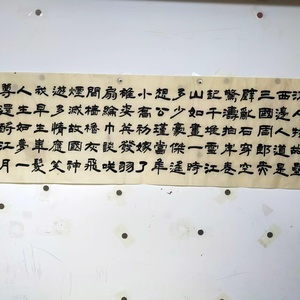 流人物故壘
西邊人道是
三國周郎赤
壁亂石穿空
驚濤拍岸卷
起千堆雪江
山如畫一時
多少豪傑遙
想公瑾當年
小喬初嫁了
雄姿英發羽
扇綸巾談笑
間檣櫓灰飛
煙滅故國神
遊多情應笑
我早生華髮
人生如夢一
尊還酹江月